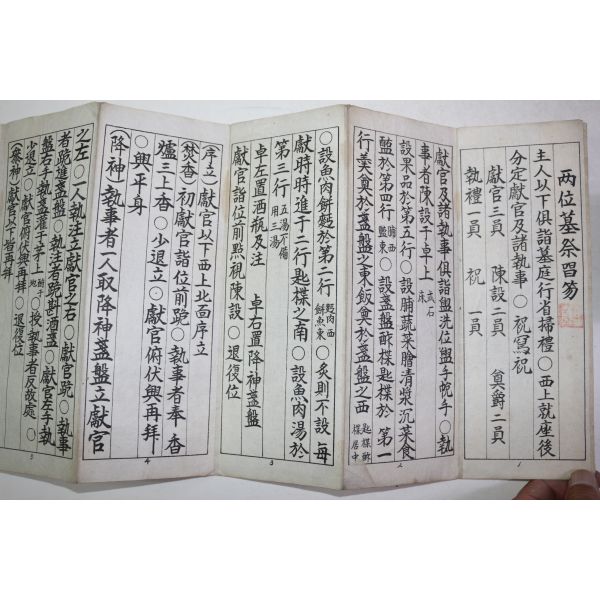 两位墓祭笏笏
主人以下俱詣墓庭行省掃禮○西上就座後
分定獻官及諸執事○祝寫祝
獻官三員 陳設二員 奠爵二員
執禮一員 祝一員
1
獻官及諸執事俱詣盥洗位盥手帨手○執
事者陳設于卓上 或石床
設果品於第五行○設脯蔬菜膾清漿沉菜食
醢於第四行 脯西醢東○設盞盤酢楪匙楪於第一
行羹奠於盞盤之東飯奠於盞盤之西 匙楪酢楪居中
2
○設魚肉餠麪於第二行 麪肉西餠魚東○炙則不設每
獻時時進于二行匙楪之南○設魚肉湯於
第三行 五湯不備用三湯
卓左置酒瓶及注 卓右置降神盞盤
獻官詣位前點視陳設○退復位
3
(序立)獻官以下西上北面序立
(焚香)初獻官詣位前跪○執事者奉香
爐三上香○少退立○獻官俯伏興再拜
○興平身
(降神)執事者一人取降神盞盤立獻官
4
之左○一人執注立獻官之右 獻官跪○執事
者跪進盞盤○執注者跪斟酒盞○獻官左手執
盤右手執盞灌于茅上 授執事者反故處○
少退立○獻官俯伏興再拜○退復位
(參神)獻官以下皆再拜
5